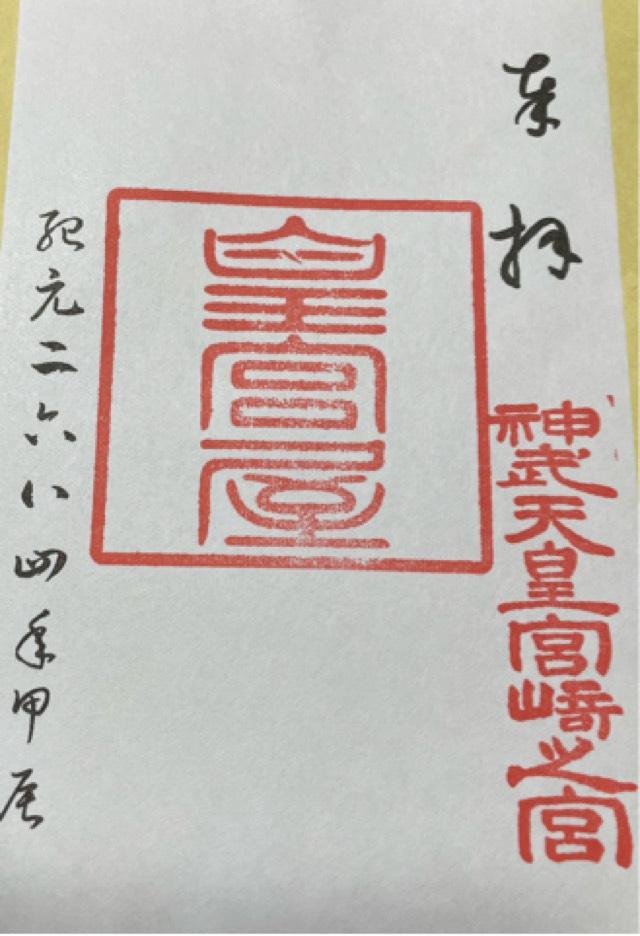 奉拝
神武天皇宮崎之宮
皇宮屋
紀元二六八四年甲辰